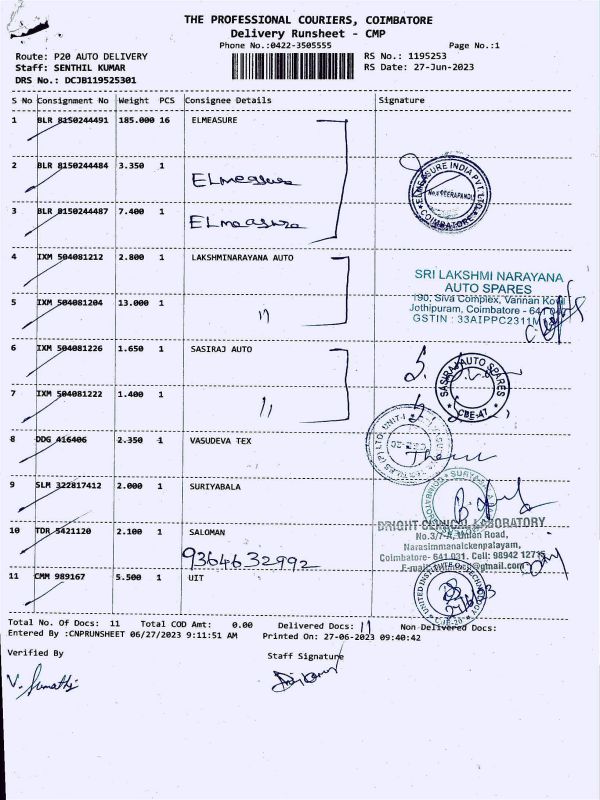 THE PROFESSIONAL COURIERS, COIMBATORE
Delivery Runsheet - CMP
Phone No.:0422-3505555 Page No.:1
Route: P20 AUTO DELIVERY RS No.: 1195253
Staff: SENTHIL KUMAR RS Date: 27-Jun-2023
DRS No.: DCJB119525301
S No Consignment No Weight PCS Consignee Details Signature
1 BLR 8150244491 185.000 16 ELMEASURE
2 BLR 8150244484 3.350 1 ELmeasure
3 BLR 8150244487 7.400 1 ELmeasure
ELMEASURE INDIA PVT. LTD.
COIMBATORE
4 IXM 504081212 2.800 1 LAKSHMINARAYANA AUTO
SRI LAKSHMI NARAYANA
AUTO SPARES
190, Siva Complex, Vannan Kovil
Jothipuram, Coimbatore - 641 047
GSTIN : 33AIPPC2311M
5 IXM 504081204 13.000 1 "
6 IXM 504081226 1.650 1 SASIRAJ AUTO
SASIRAJ AUTO SPARES
CBE-47
7 IXM 504081222 1.400 1 "
8 DDG 416406 2.350 1 VASUDEVA TEX
9 SLM 322817412 2.000 1 SURIYABALA
10 TDR 5421120 2.100 1 SALOMAN
9364632992
BRIGHT CLINICAL LABORATORY
No.3/7-A, Union Road,
Narasimmanaickenpalayam,
Coimbatore- 641 031. Cell: 98942 12715
11 CMM 989167 5.500 1 UIT
UNITED INSTITUTE OF TECHNOLOGY
Total No. Of Docs: 11 Total COD Amt: 0.00 Delivered Docs: 11 Non-Delivered Docs:
Entered By :CNPRUNSHEET 06/27/2023 9:11:51 AM Printed On: 27-06-2023 09:40:42
Verified By Staff Signature
V. Sumathi